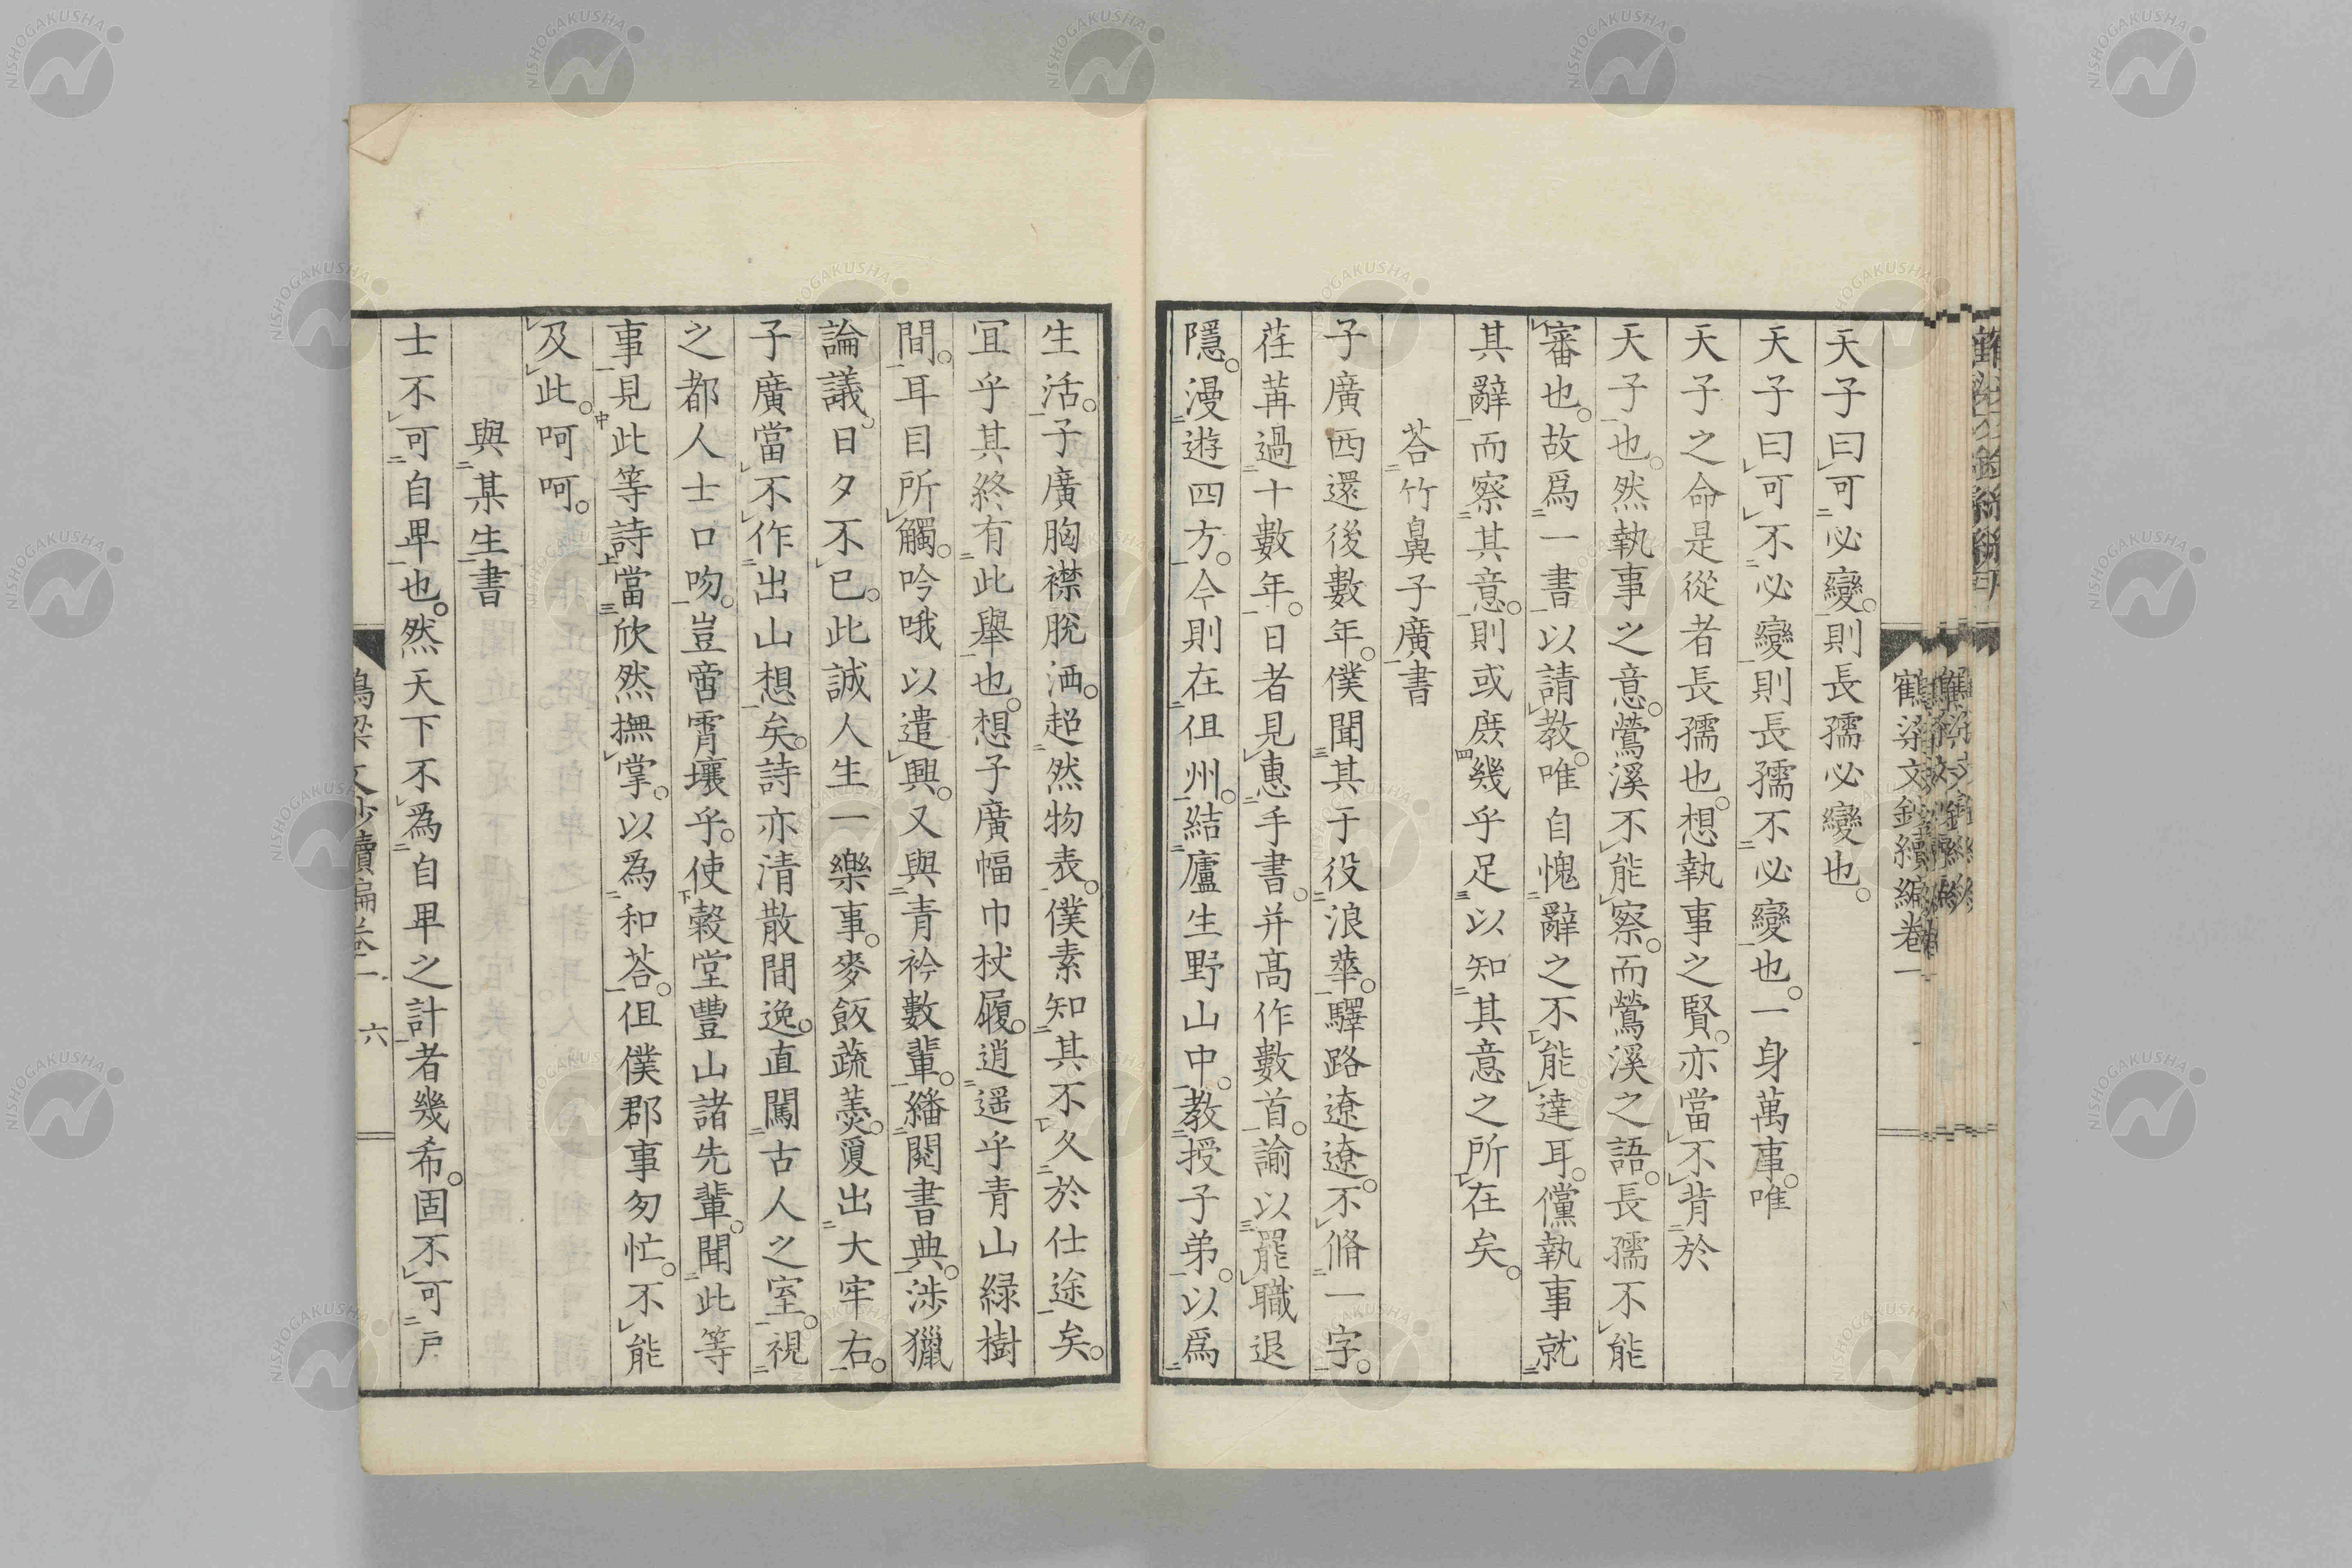 鶴梁文鈔續編卷一
天子曰可必變。則長孺必變也。
天子曰可不必變則長孺不必變也。一身萬事。唯
天子之命是從者長孺也。想執事之賢。亦當不背於
天子也。然執事之意。鶯溪不能察。而鶯溪之語。長孺不能
審也。故爲一書以請教。唯自愧辭之不能達耳。儻執事就
其辭而察其意。則或庶幾乎足以知其意之所在矣。
荅竹鼻子廣書
子廣西還後數年。僕聞其于役浪華。驛路遼遼。不脩一字。
荏苒過十數年。日者見惠手書。并高作數首。諭以罷職退
隱。漫遊四方。今則在但州。結廬生野山中。教授子弟。以爲
生活。子廣胸襟脫洒。超然物表。僕素知其不久於仕途矣。
宜乎其終有此舉也。想子廣幅巾杖履。逍遥乎青山緑樹
間。耳目所觸。吟哦以遣興。又與青衿數輩。繙閱書典。涉獵
論議。日夕不已。此誠人生一樂事。麥飯蔬羮。敻出大牢右。
子廣當不作出山想矣。詩亦清散間逸。直闖古人之室。視
之都人士口吻。豈啻霄壤乎。使穀堂豐山諸先輩。聞此等
事見此等詩當欣然撫掌。以爲和荅。但僕郡事匆忙。不能
及此。呵呵。
與某生書
士不可自卑也。然天下不為自卑之計者幾希。固不可戸
六